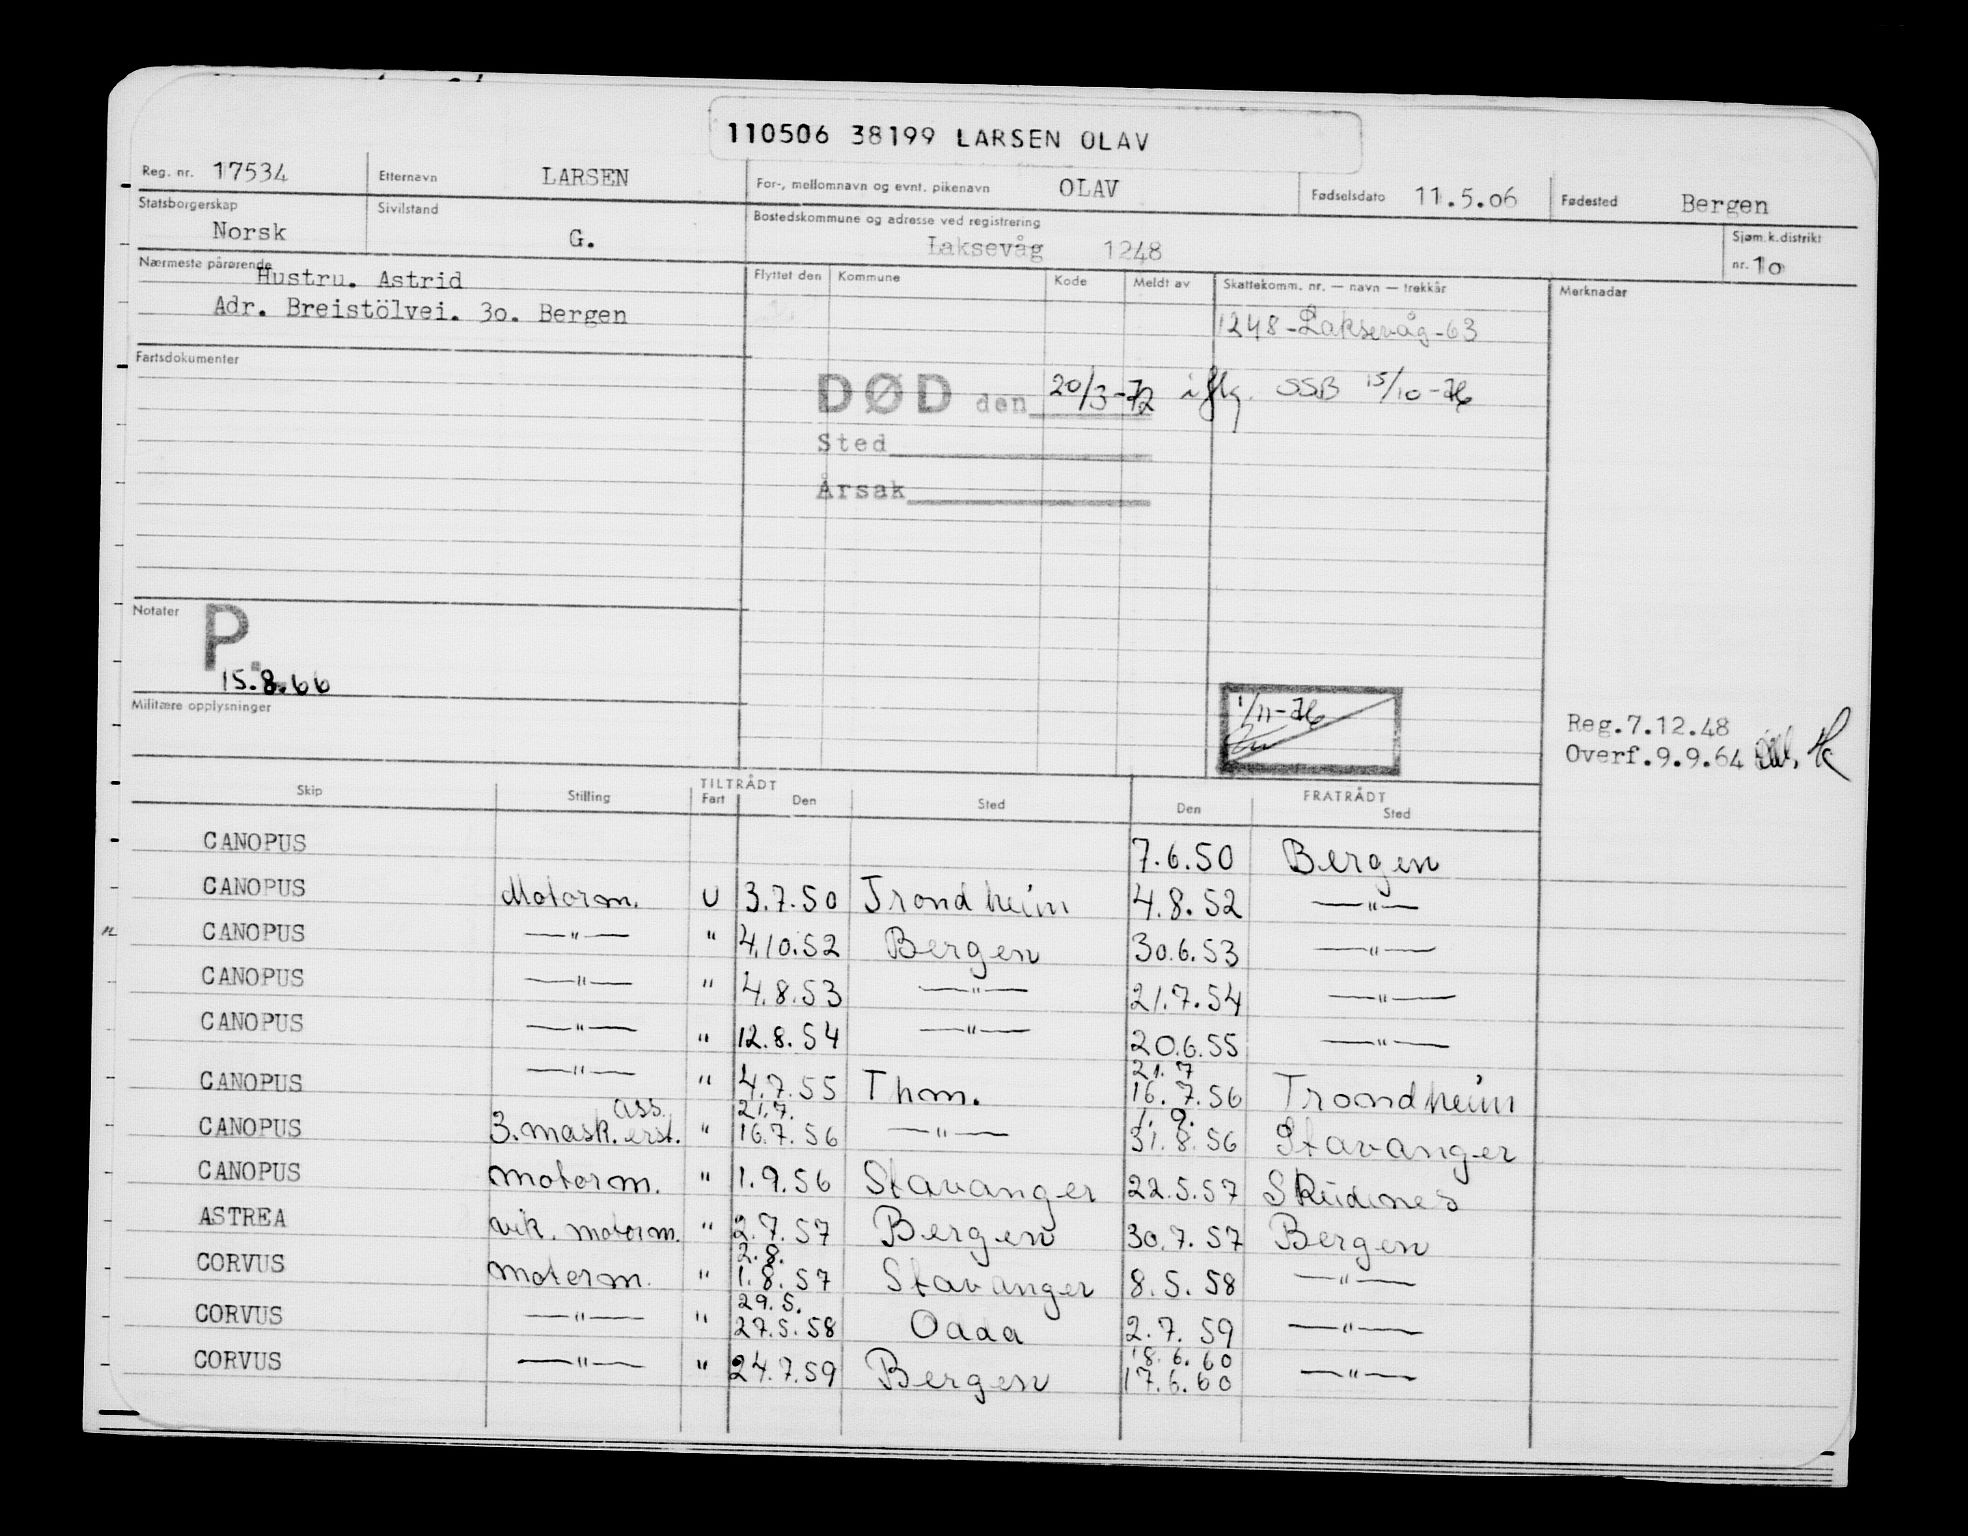 110506 38199 LARSEN OLAV
Reg. nr. 17534 Etternavn LARSEN For-, mellomnavn og evnt. pikenavn OLAV Fødselsdato 11.5.06 Fødested Bergen
Statsborgerskap Norsk Sivilstand G. Bostedskommune og adresse ved registrering Laksevåg 1248 Sjøm.k.distrikt nr. 10
Nærmeste pårørende Hustru. Astrid
Adr. Breistölvei. 3o. Bergen
Flyttet den Kommune Kode Meldt av Skattekomm. nr. — navn — trekkår Merknader
1248-Laksevåg-63
Fartsdokumenter
DØD den 20/3-72 iflg. SSB 15/10-76
Sted
Årsak
Notater
P.
15.8.66
1/11-76
Militære opplysninger
Reg.7.12.48
Overf.9.9.64
TILTRÅDT FRATRÅDT
Skip Stilling Fart Den Sted Den Sted
CANOPUS 7.6.50 Bergen
CANOPUS Motorm. U 3.7.50 Trondheim 4.8.52 —"—
CANOPUS —"— " 4.10.52 Bergen 30.6.53 —"—
CANOPUS —"— " 4.8.53 —"— 21.7.54 —"—
CANOPUS —"— " 12.8.54 —"— 20.6.55 —"—
21.7
CANOPUS —"— " 4.7.55 Thm. 16.7.56 Trondheim
ass. 21.7. 1.9.
CANOPUS 3.mask. erst. " 16.7.56 —"— 31.8.56 Stavanger
CANOPUS motorm. " 1.9.56 Stavanger 22.5.57 Skudenes
ASTREA vik. motorm. " 2.7.57 Bergen 30.7.57 Bergen
2.8.
CORVUS motorm. " 1.8.57 Stavanger 8.5.58 —"—
29.5.
CORVUS —"— " 27.5.58 Odda 2.7.59 —"—
18.6.60
CORVUS —"— " 24.7.59 Bergen 17.6.60 —"—